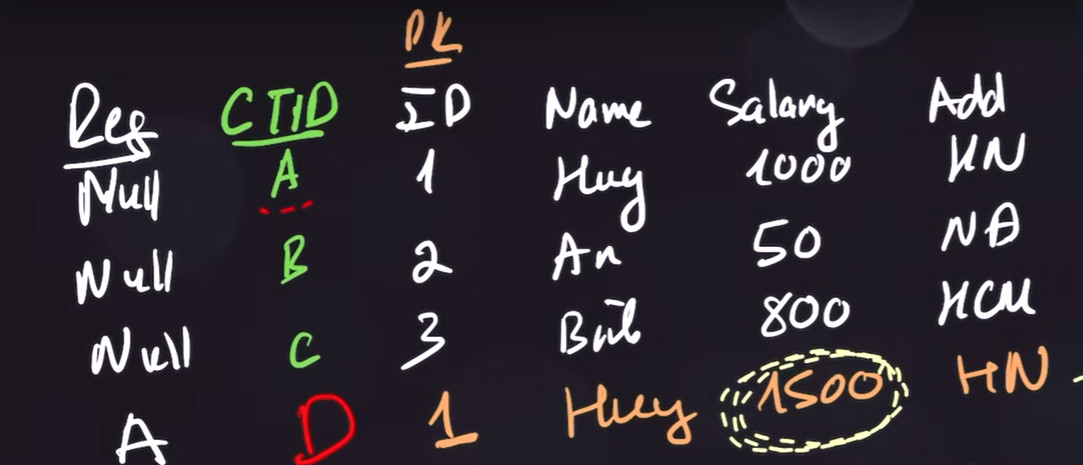 PK
Ref CTID ID Name Salary Add
Null A 1 Huy 1000 HN
Null B 2 An 50 NA
Null C 3 800 HCM
A D 1 Huy 1500 HN